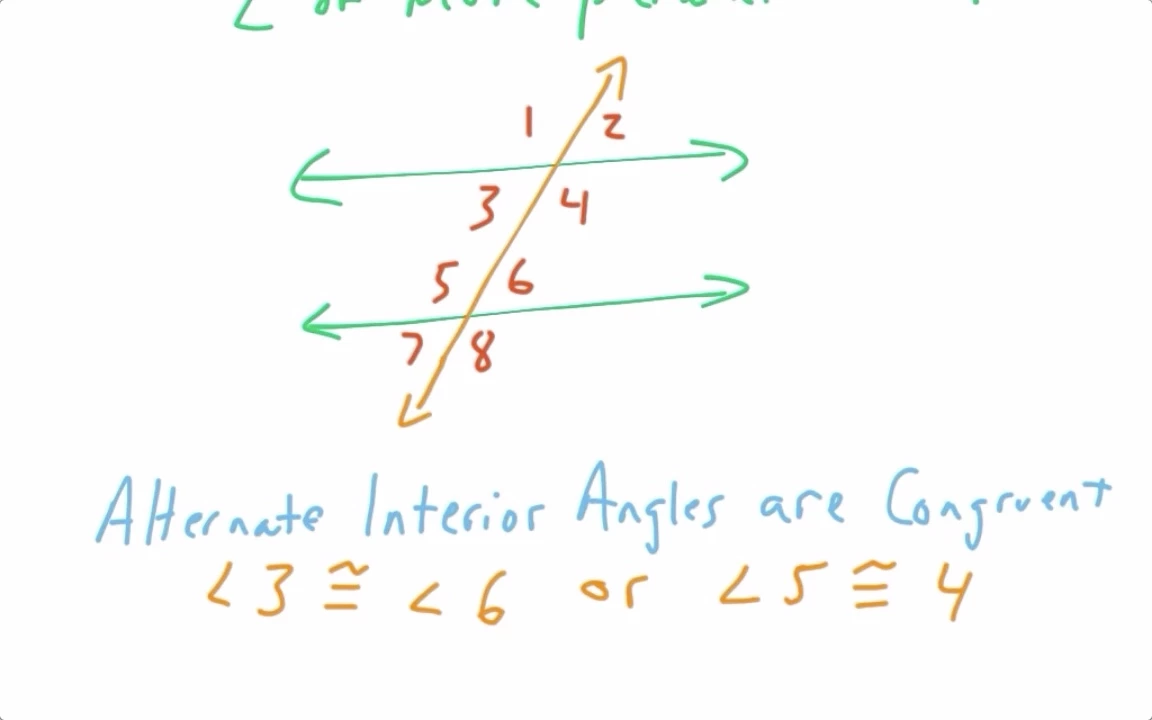 2 or more
1 2
3 4
5 6
7 8
Alternate Interior Angles are Congruent
<3 ≅ <6 or <5 ≅ 4